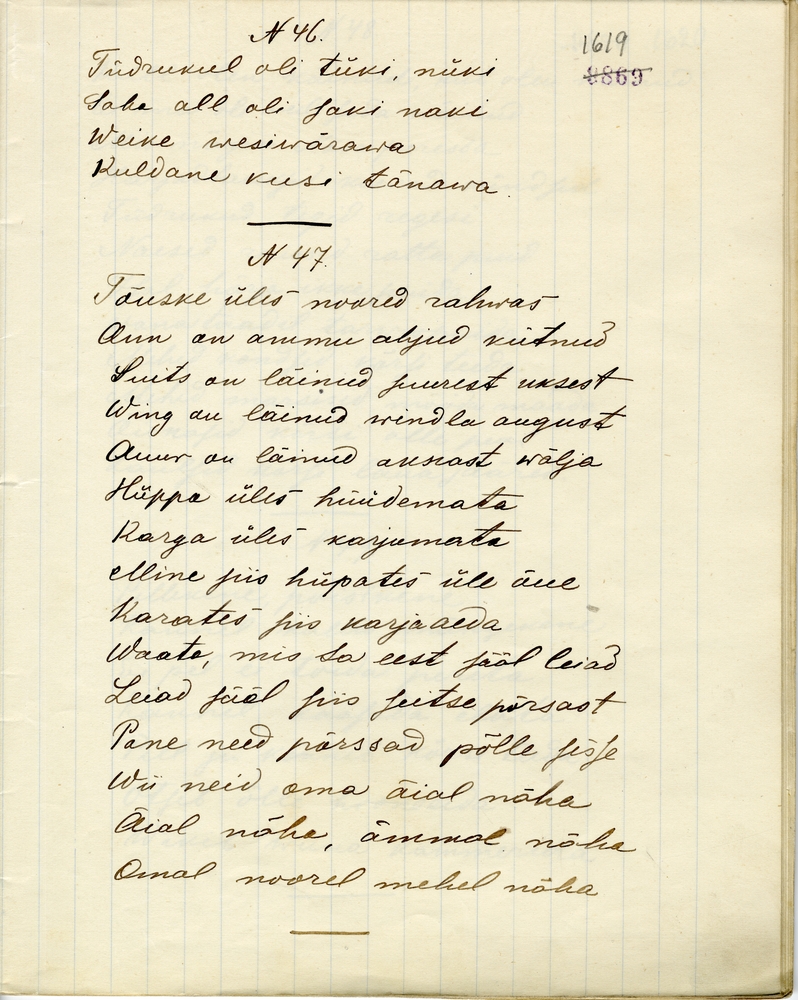 N 46.
1619
8869
Tüdrukul oli tüki, nüki
Saba all oli saki naki
Weike wesiwärawa
Kuldane kusi tänawa.
N 47.
Tõuske üles noored rahwas
Ann on ammu ahjud kütnud
Suits on läinud suurest uksest
Wing on läinud windla august
Auur on läinud aknast wälja
Hüppa üles hüüdemata
Karga üles karjumata
Mine siis hüpates üle õue
Karates siis karjaaeda
Waata, mis sa eest sääl leiad
Leiad sääl siis seitse põrsast
Pane need põrssad põlle sisse
Wii neid oma äial näha
Äial näha, ämmal näha
Omal noorel mehel näha